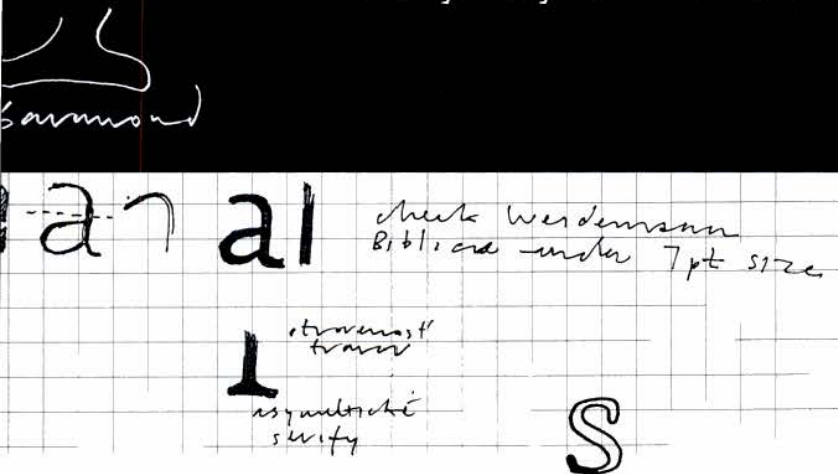 Garamond
a a al
check Weidemann
Biblica under 7 pt size
otvorenosť
tvarov
asymetrické
serify
S